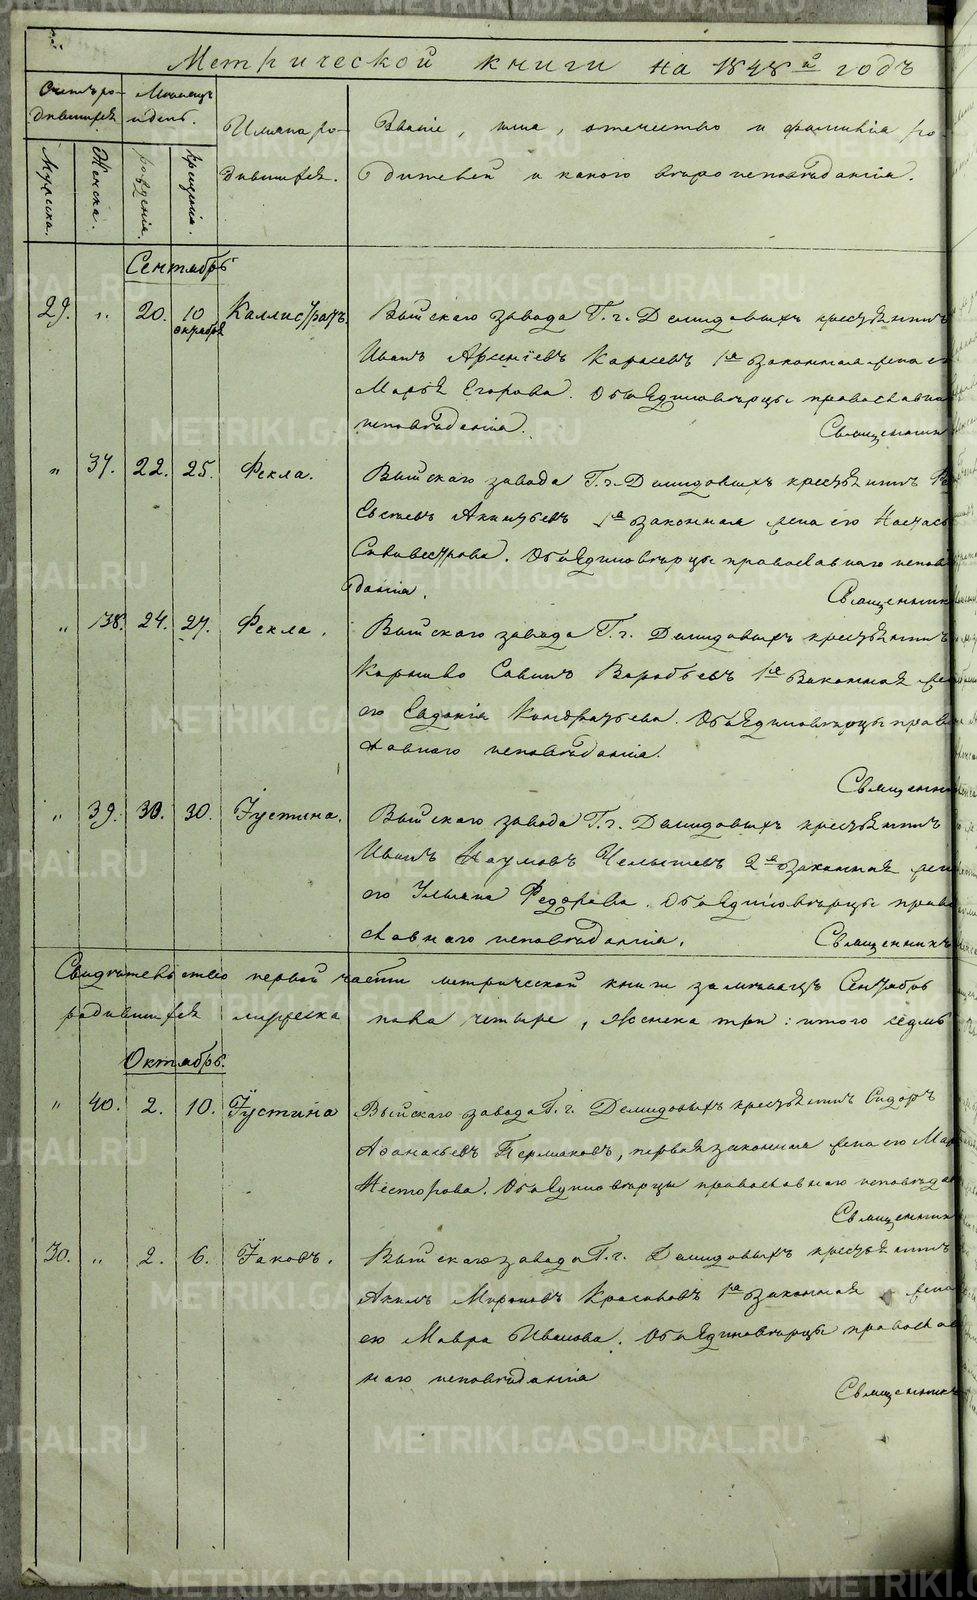 Метрической книги на 1848й годъ
Счетъ ро- Мѣсяцъ
дившихся и день.
Имяна ро- Званіе, имя, отечество и фамилія ро-
дившихся. дителей и какого вѣроисповѣданія.
Мужска. Женска. рожденія. крещенія.
Сентябрь
29. „ 20. 10 октября Каллистратъ. Выйскаго завода Г.г. Демидовыхъ крестьянинъ
Иванъ Арсеніевъ 1я законная жена е
Марья Егорова. Оба Единовѣрцы православна
исповѣданія. Священник
„ 37. 22. 25. Фекла. Выйскаго завода Г.г. Демидовыхъ крестьянинъ
Евстевъ 1я законная жена его Настась
Сильвестрова. Оба Единовѣрцы православнаго исповѣ
данія. Священник
„ 38. 24. 27. Фекла. Выйскаго завода Г.г. Демидовыхъ крестьянинъ
Карнило Савинъ Воробьевъ 1я законная же
его Евдокія Кондратьева. Оба Единовѣрцы право
славнаго исповѣданія.
Священни
„ 39. 30. 30. Іустина. Выйскаго завода Г.г. Демидовыхъ крестьянинъ
Иванъ Наумовъ Челышевъ 2я законная жен
его Ульяна Федорова. Оба Единовѣрцы право
славнаго исповѣданія. Священникъ
Свидѣтельство первой части метрической книги за мѣсяцъ Сентябрь
родившихся мужеска пола четыре, Женска три: итого седмь
Октябрь.
„ 40. 2. 10. Іустина Выйскаго завода Г.г. Демидовыхъ крестьянинъ Сидоръ
Афанасьевъ Пермяковъ, первая законная жена его Мар
Несторова. Оба Единовѣрцы православнаго исповѣда
Священник
30. „ 2. 6. Іаковъ. Выйскаго завода Г.г. Демидовыхъ крестьянинъ
Акимъ Мироновъ Красиковъ 1я законная жена
его Мавра Иванова. Оба Единовѣрцы православ
наго исповѣданія
Священникъ
METRIKI.GASO-URAL.RU